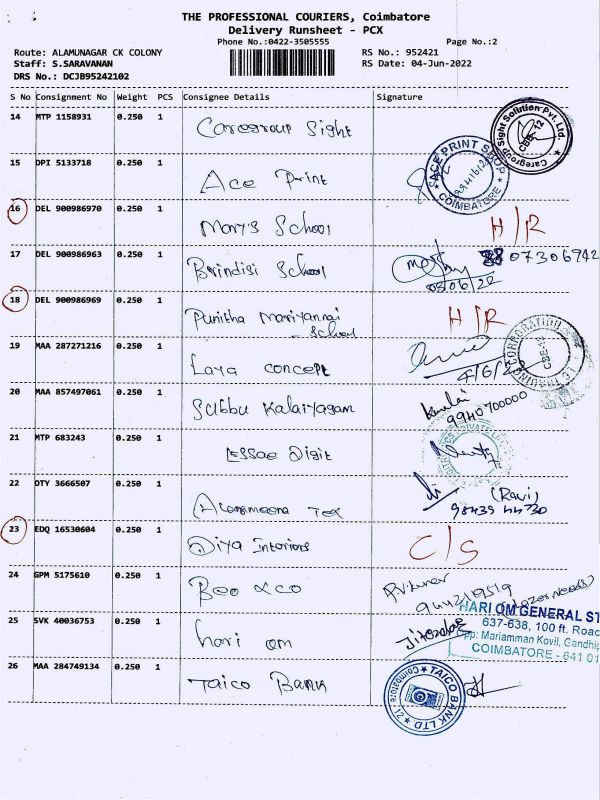 THE PROFESSIONAL COURIERS, Coimbatore
Delivery Runsheet - PCX
Phone No.:0422-3505555
Page No.:2
Route: ALAMUNAGAR CK COLONY
RS No.: 952421
Staff: S.SARAVANAN
RS Date: 04-Jun-2022
DRS No.: DCJB95242102
S No Consignment No Weight PCS Consignee Details Signature
14 MTP 1158931 0.250 1 Caregroup Sight
Caregroup Sight Solution Pvt. Ltd. CBE-12
15 DPI 5133718 0.250 1 Ace Print
ACE PRINT SHOP COIMBATORE
16 DEL 900986970 0.250 1 Mary's School H/R
17 DEL 900986963 0.250 1 Brindisi School
07306942
05/06/22
18 DEL 900986969 0.250 1 Punitha Mariyannai School H/R
19 MAA 287271216 0.250 1 Laya concept
4/6/22
CORPORATION CBE-12
20 MAA 857497061 0.250 1 Subbu Kalaiyagam
9940700000
21 MTP 683243 0.250 1 Essae Digit
22 OTY 3666507 0.250 1 Tex
(Ravi)
98439 44730
23 EDQ 16530604 0.250 1 Diya Interiors C/S
24 GPM 5175610 0.250 1 Boo & co
9442119519
25 SVK 40036753 0.250 1 hari om
HARI OM GENERAL ST
637-638, 100 ft. Road
Opp: Mariamman Kovil, Gandhip
COIMBATORE - 641 01
26 MAA 284749134 0.250 1 Taico Bank
TAICO BANK LTD Coimbatore 12